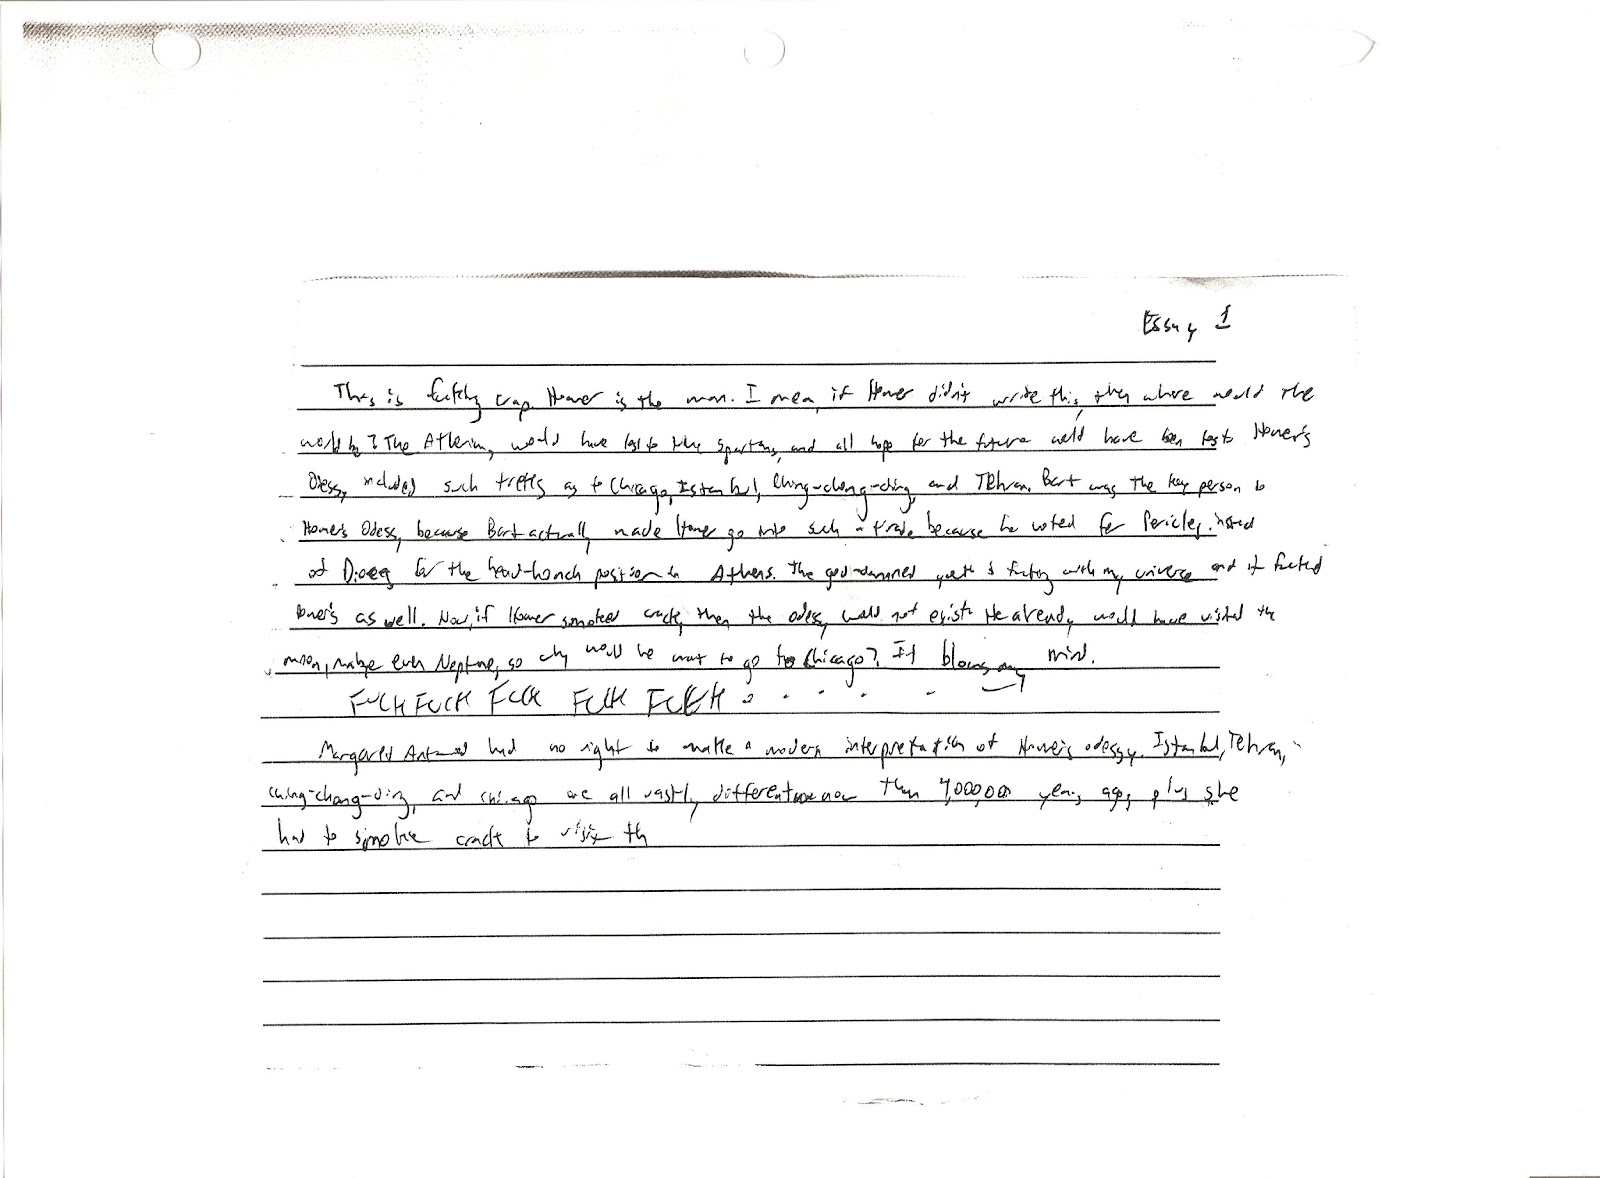 Essay 1
This is fucking crap. Homer is the man. I mean, if Homer didn't write this, then where would the
world be? The Athenians would have lost to the Spartans, and all hope for the future would have been lost. Homer's
Odessy included such treks as to Chicago, Istanbul, Ching-chong-ding, and Tehran. Bart was the key person to
Homer's Odessy, because Bart actually made Homer go into such a trade because he voted for Pericles instead
of for the head-honch position in Athens. The god-damned youth is fucking with my universe and it fucked
Homer's as well. Now, if Homer smoked crack, then the odessy would not exist. He already would have visited the
moon, maybe even Neptune, so why would he want to go to Chicago? It blows my mind.
FUCK FUCK FUCK FUCK FUCK
Margaret Antwood had no right to make a modern interpretation of Homer's odessy. Istanbul, Tehran,
ching-chang-ding, and chicago are all vastly different now than 7,000,000 years ago, plus she
had to smoke crack to visit th